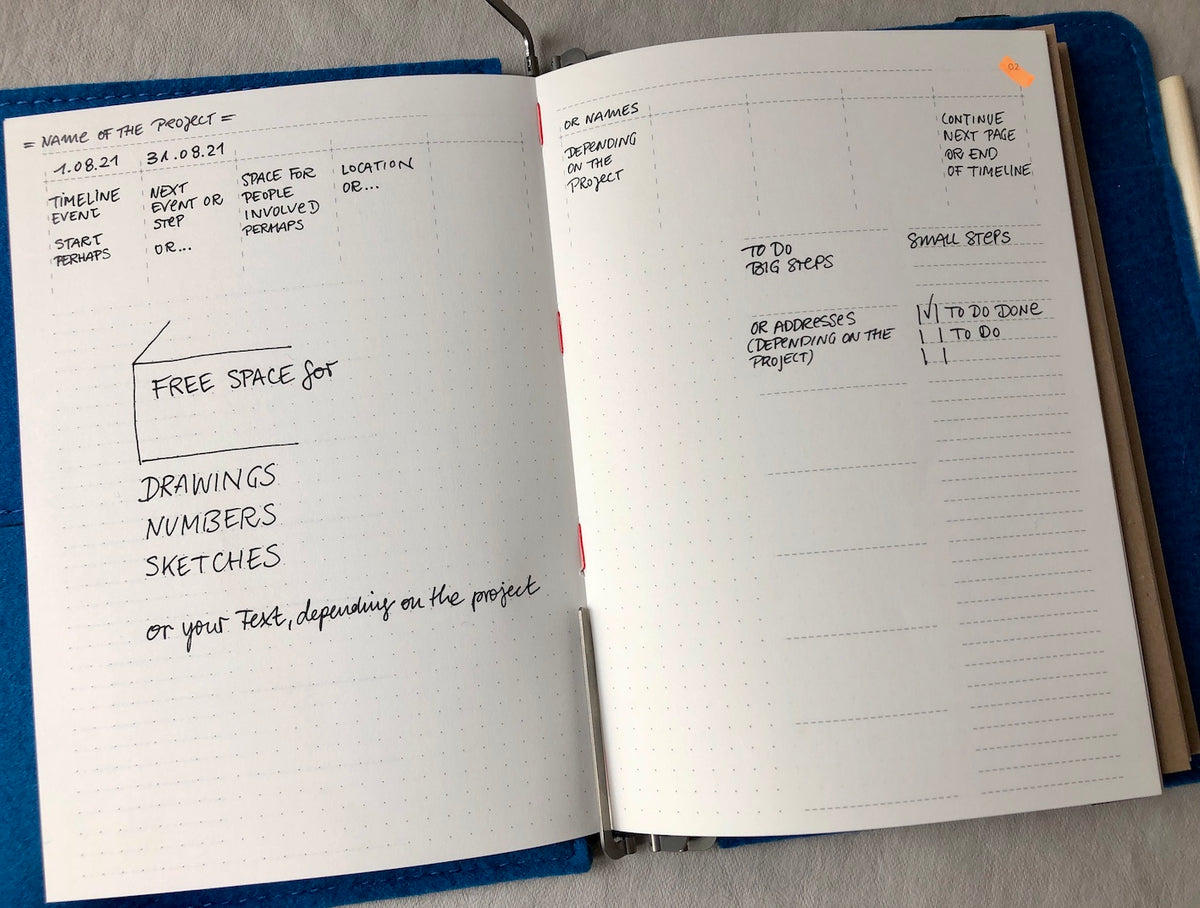 = NAME OF THE PROJECT =
1.08.21
31.08.21
TIMELINE
EVENT
START
PERHAPS
NEXT
EVENT OR
STEP
OR...
SPACE FOR
PEOPLE
INVOLVED
PERHAPS
LOCATION
OR...
FREE SPACE for
DRAWINGS
NUMBERS
SKETCHES
or your Text, depending on the project
02
OR NAMES
DEPENDING
ON THE
PROJECT
CONTINUE
NEXT PAGE
OR END
OF TIMELINE
TO DO
BIG STEPS
OR ADDRESSES
(DEPENDING ON THE
PROJECT)
SMALL STEPS
|√| TO DO DONE
| | TO DO
| |